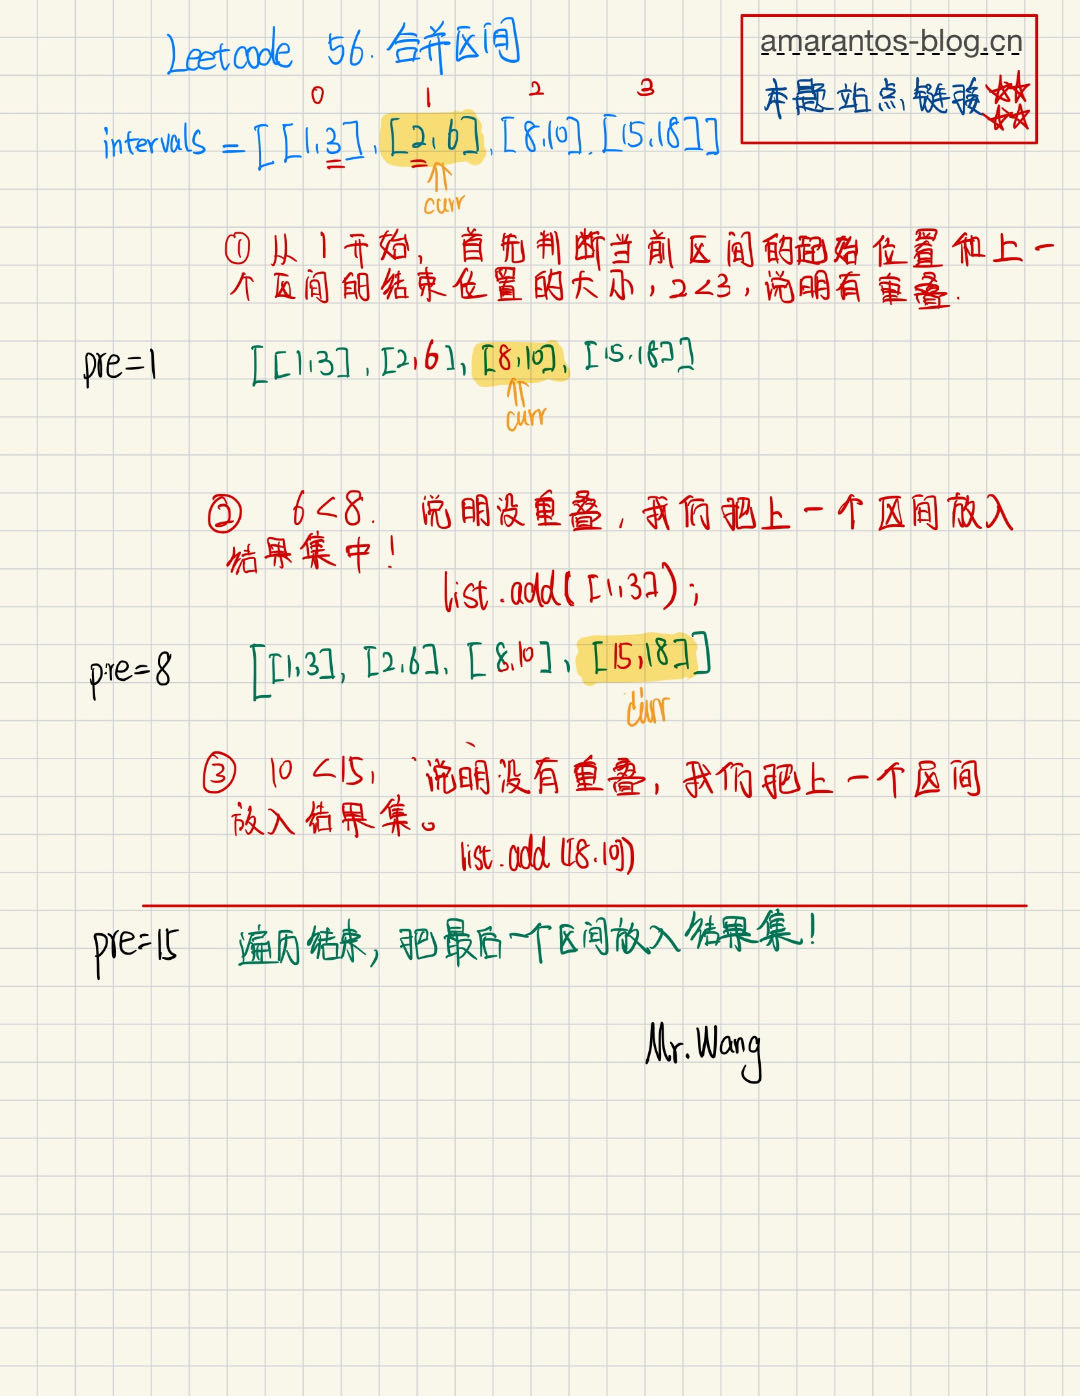 Leetcode 56. 合并区间
amarantos-blog.cn
本题站点链接
0 1 2 3
intervals = [[1,3], [2,6], [8,10], [15,18]]
curr
① 从1开始, 首先判断当前区间的起始位置和上一
个区间的结束位置的大小, 2<3, 说明有重叠.
pre=1 [[1,3], [2,6], [8,10], [15,18]]
curr
② 6<8. 说明没重叠, 我们把上一个区间放入
结果集中!
list.add([1,3]);
pre=8 [[1,3], [2,6], [8,10], [15,18]]
curr
③ 10<15, 说明没有重叠, 我们把上一个区间
放入结果集。
list.add([8,10])
pre=15 遍历结束, 把最后一个区间放入结果集!
Mr.Wang